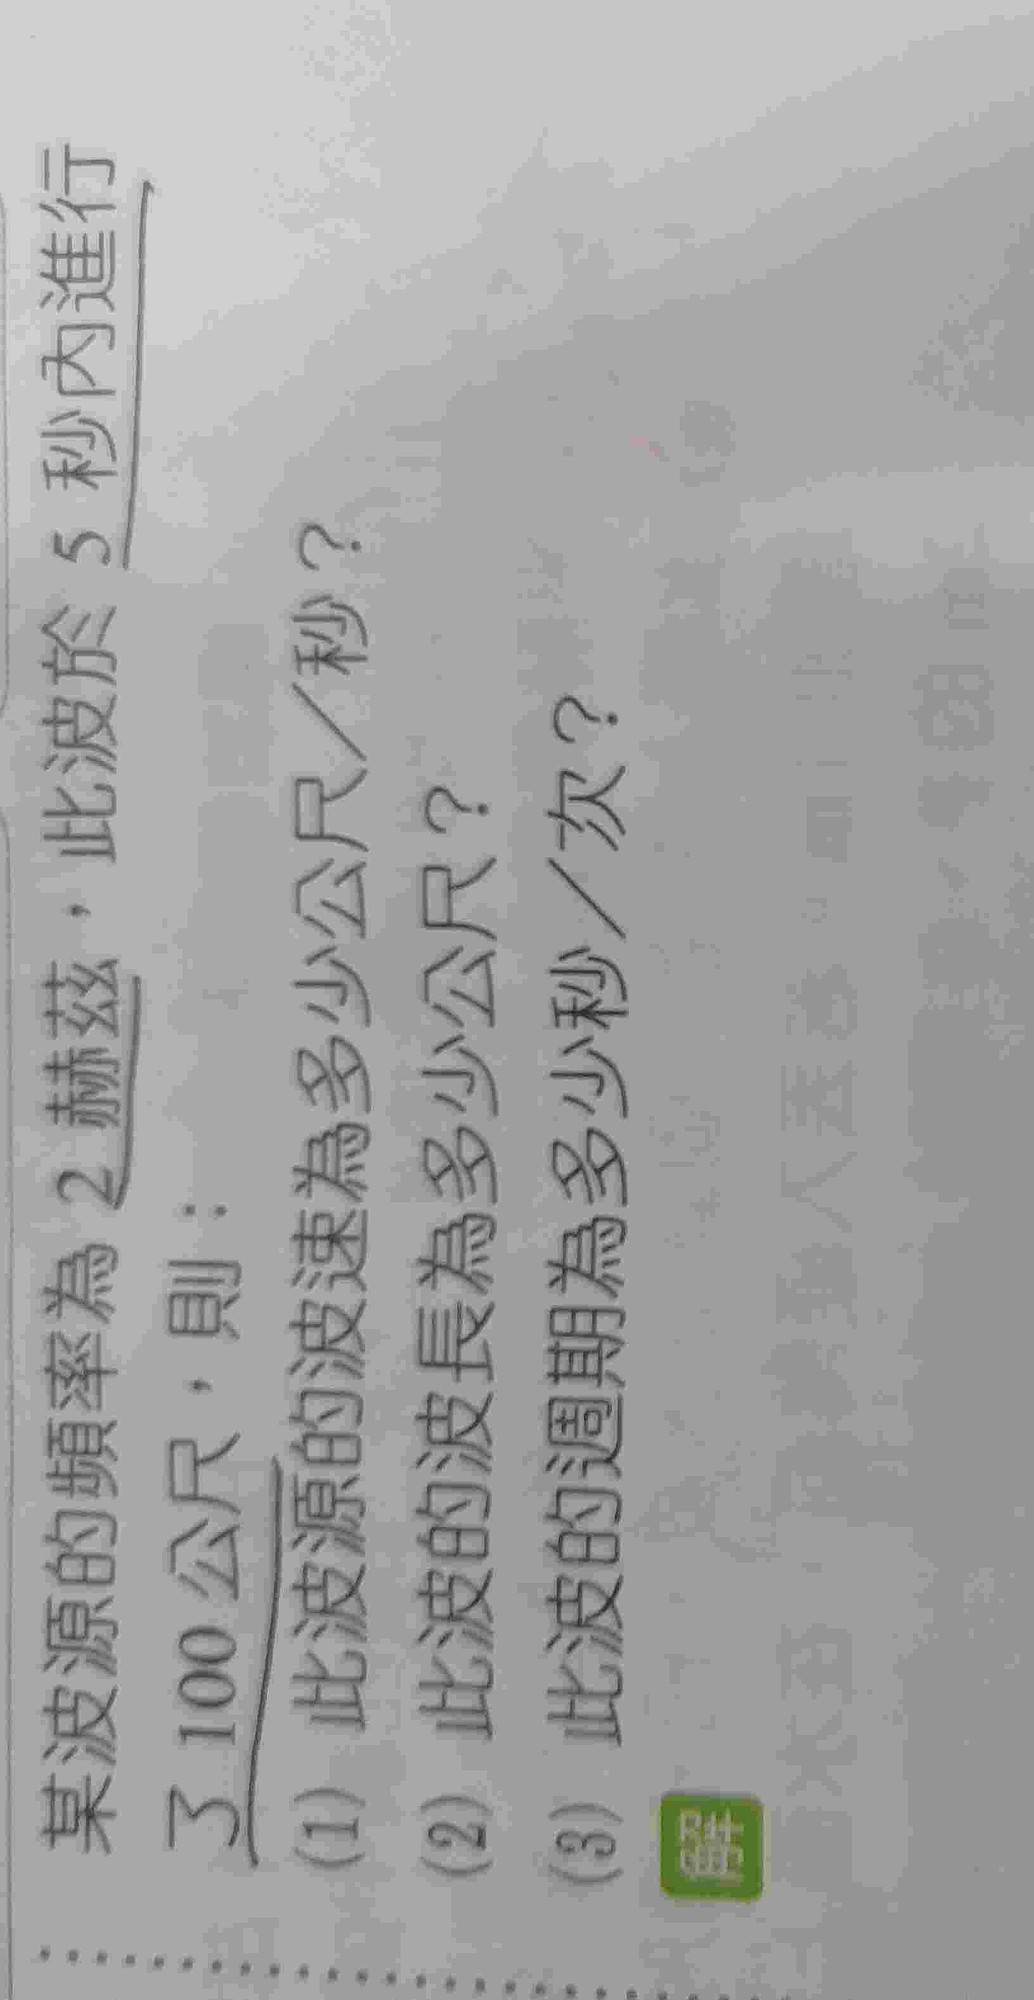 某波源的頻率為 2 赫茲，此波於 5 秒內進行
了 100 公尺，則：
(1) 此波源的波速為多少公尺／秒？
(2) 此波的波長為多少公尺？
(3) 此波的週期為多少秒／次？